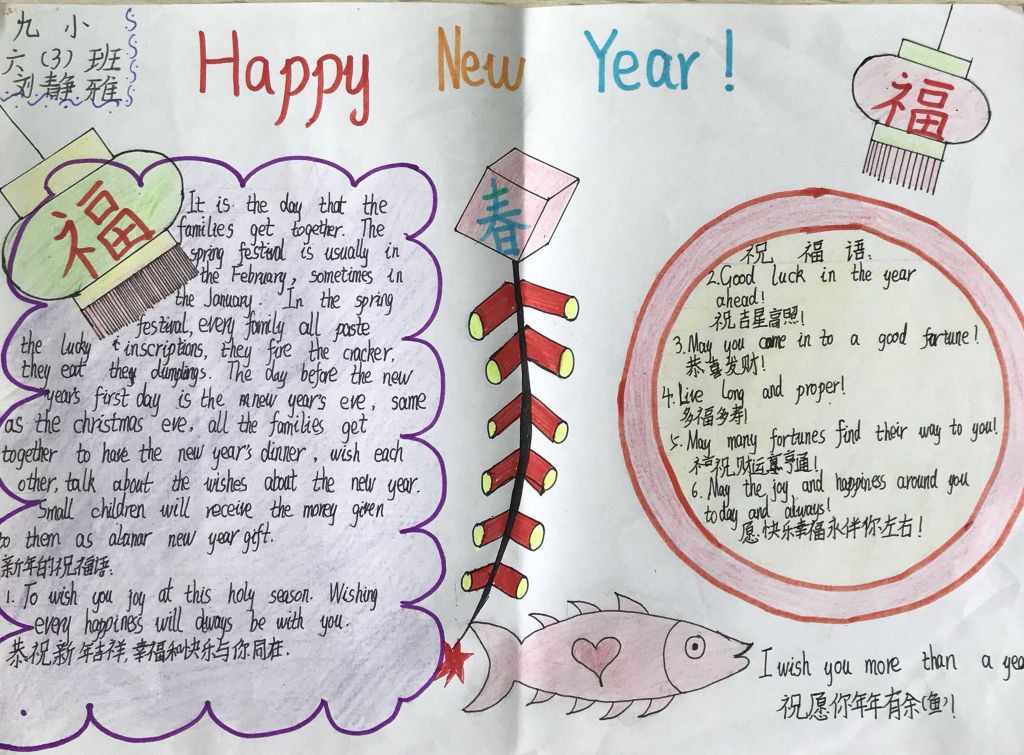 九 小
六（3）班
刘静雅
Happy New Year!
福
福
春
It is the day that the
families get together. The
spring festival is usually in
the February, sometimes in
the January. In the spring
festival, every family all paste
the lucky inscriptions, they fire the cracker,
they eat they dumplings. The day before the new
year's first day is the new year's eve, same
as the christmas eve, all the families get
together to have the new year's dinner, wish each
other, talk about the wishes about the new year.
Small children will receive the money given
to them as alanar new year gift.
新年的祝福语:
1. To wish you joy at this holy season. Wishing
every happiness will always be with you.
恭祝新年吉祥,幸福和快乐与你同在.
祝 福 语:
2.Good luck in the year
ahead!
祝吉星高照!
3.May you come in to a good fortune!
恭喜发财!
4.Live long and proper!
多福多寿!
5.May many fortunes find their way to you!
祝财运亨通!
6.May the joy and happiness around you
today and always!
愿快乐幸福永伴你左右!
I wish you more than a yea
祝愿你年年有余(鱼)!